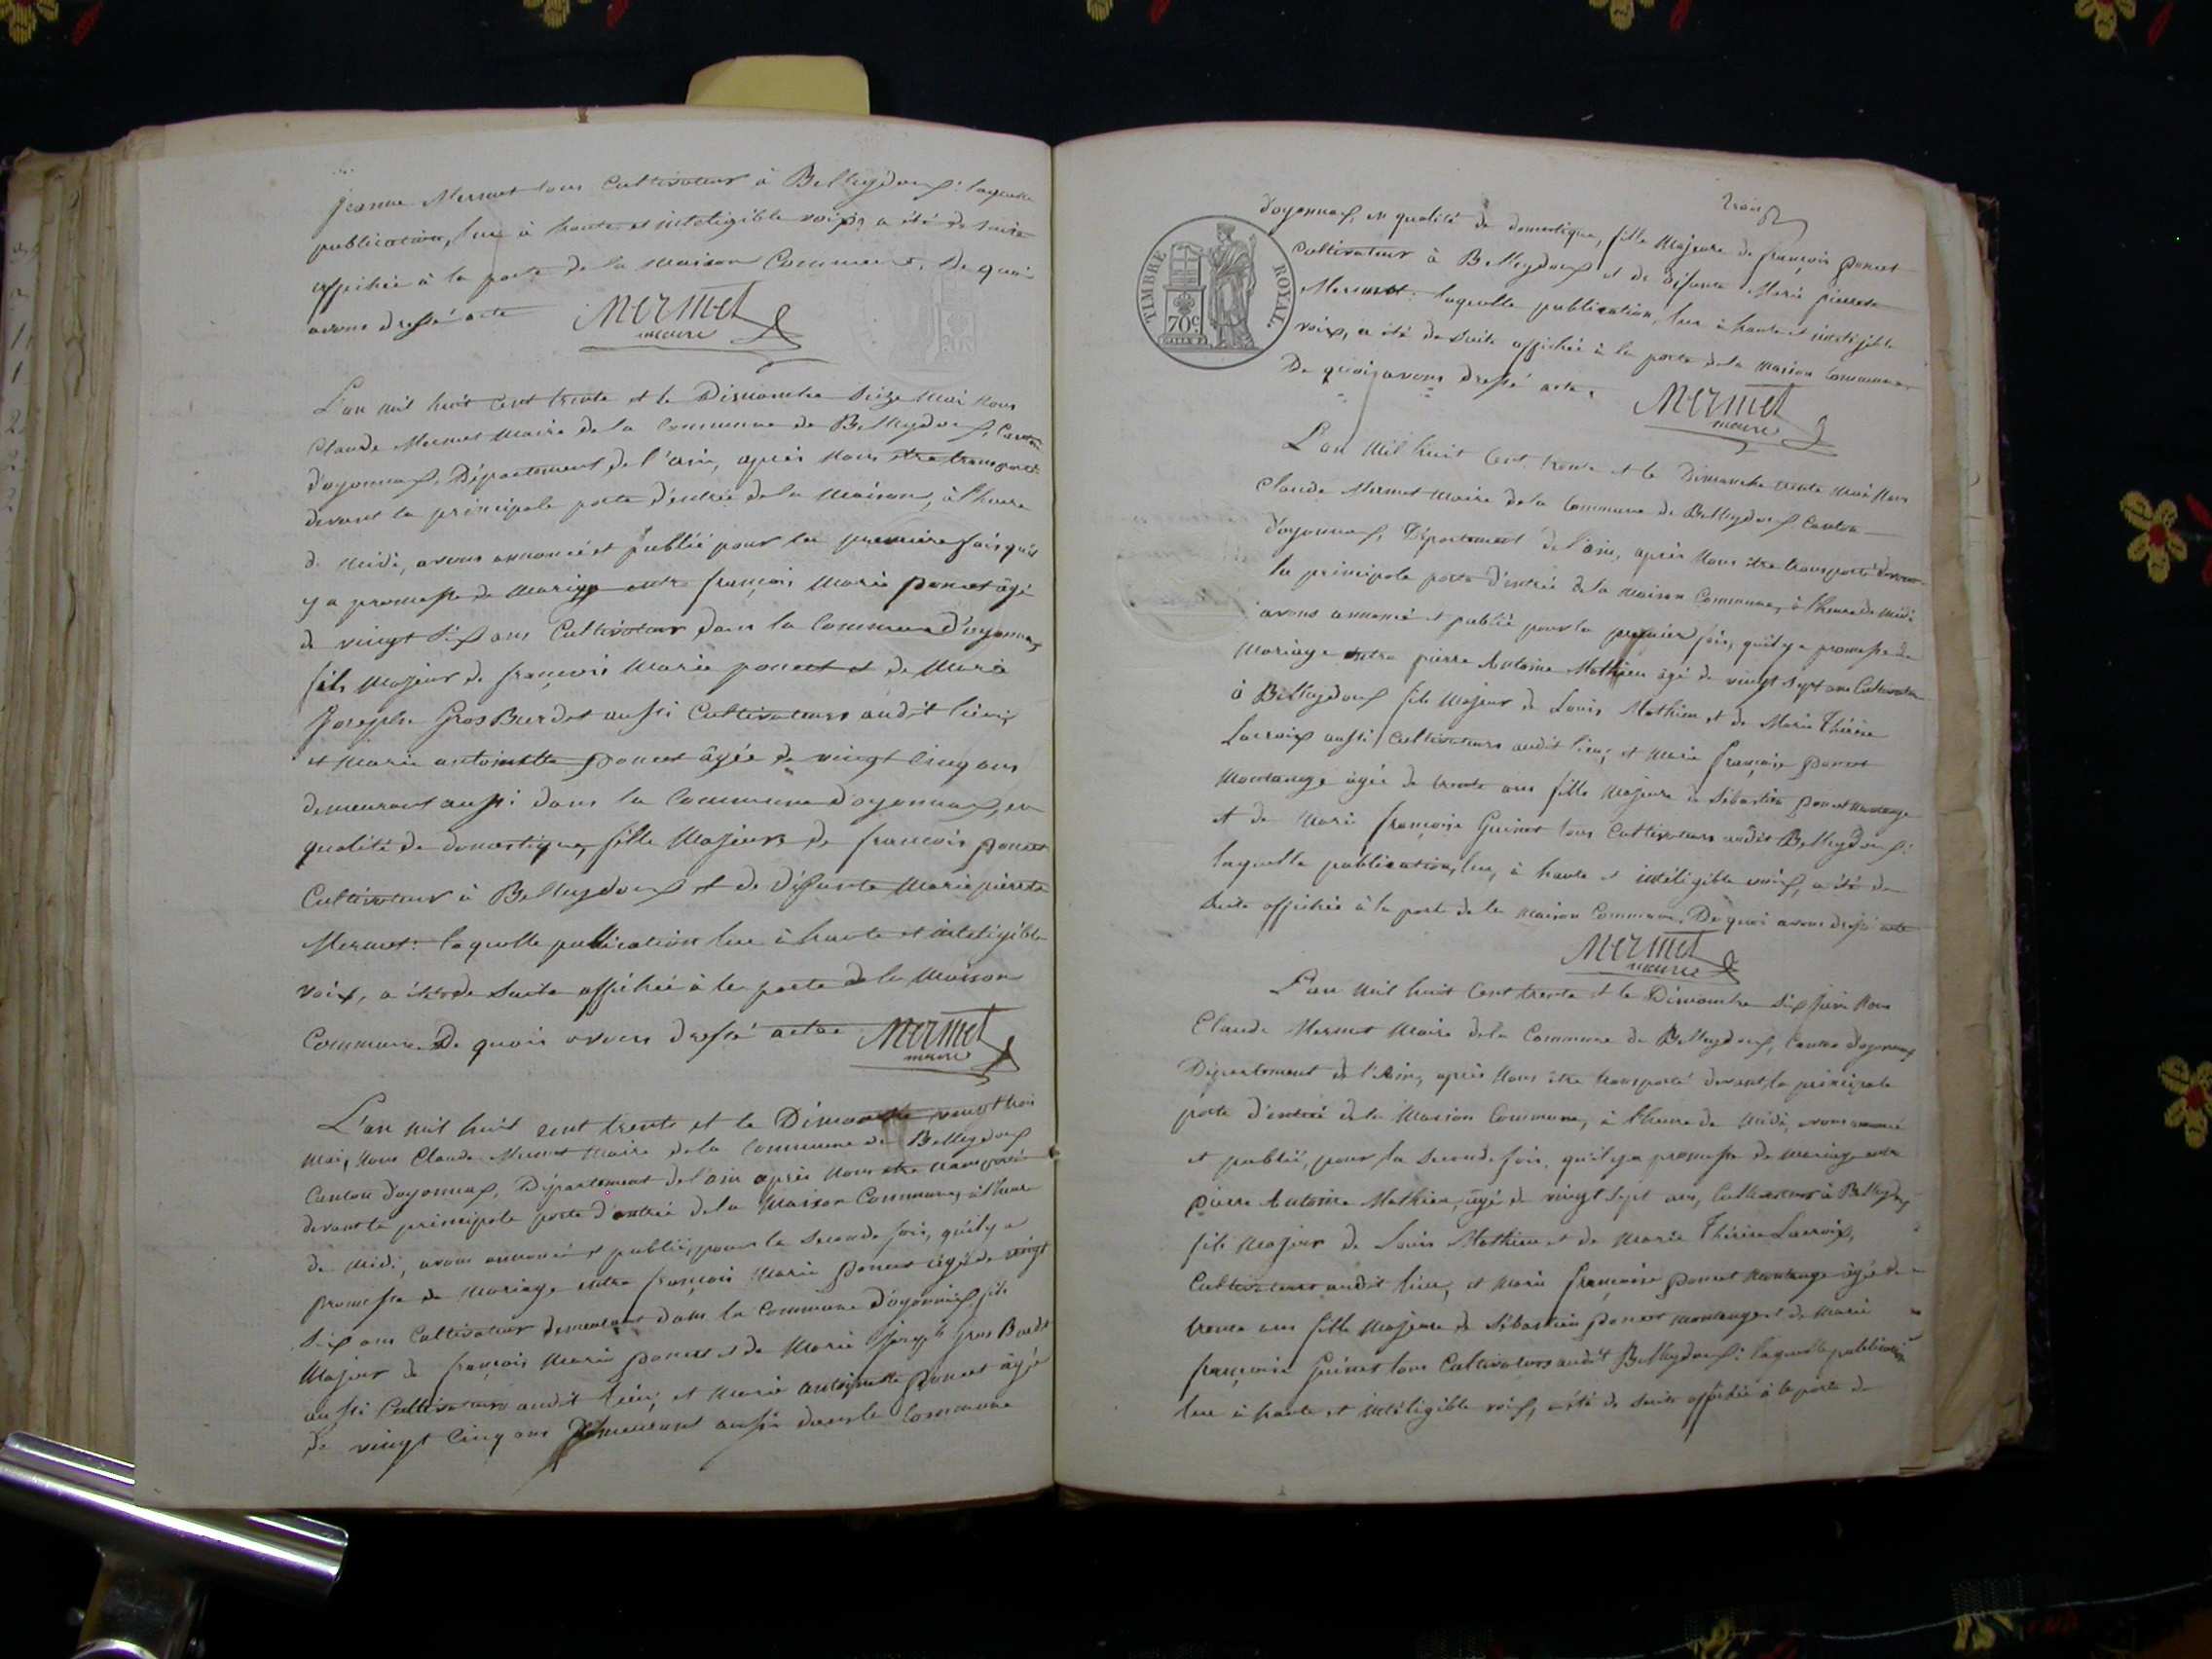 Jeanne Mermet tous Cultivateur à Belleydoux: laquelle
publication, lue à haute et inteligible voix, a été de suite
affichée à la porte de la maison Commune. De quoi
avons dressé acte
Mermet
maire
L'an mil huit Cent trente et le Dimanche Seize Mai Nous
Claude Mermet Maire de la Commune de Belleydoux, Canton
d'oyonnax, Département de l'ain, après Nous être transporté
devant la principale porte d'entrée de la Maison, à l'heure
de Midi, avons annoncé et publié pour la première fois qu'il
y a promesse de Mariage entre françois Marie poncet âgé
de vingt Six ans Cultivateur dans la Commune d'oyonnax
fils Majeur de françois Marie poncet et de Marie
Josephe Gros Burdet aussi Cultivateurs audit lieu;
et Marie antoinette poncet âgée de vingt Cinq ans
demeurant aussi dans la Commune d'oyonnax, en
qualité de domestique, fille Majeure de françois poncet
Cultivateur à Belleydoux et de défunte Marie pierrette
Mermet: laquelle publication lue à haute et inteligible
voix, a été de Suite affichée à la porte de la Maison
Commune De quoi avons dressé acte
Mermet
maire
L'an mil huit cent trente et le Dimanche vingt trois
Mai, Nous Claude Mermet Maire de la Commune de Belleydoux
Canton d'oyonnax, Département de l'ain après Nous être transporté
devant la principale porte d'entrée de la Maison Commune, à l'heure
de Midi, avons annoncé et publié, pour la Seconde fois, qu'il y a
promesse de Mariage entre françois Marie poncet âgé de vingt
Six ans Cultivateur demeurant dans la Commune d'oyonnax, fils
Majeur de françois Marie poncet et de Marie Joseph gros Burdet
aussi Cultivateurs audit lieu; et Marie antoinette poncet âgée
de vingt Cinq ans Demeurant aussi dans la Commune
trois
d'oyonnax, en qualité de domestique, fille Majeure de françois poncet
Cultivateur à Belleydoux et de défunte Marie pierrette
Mermet: laquelle publication, lue à haute et inteligible
voix, a été de Suite affichée à la porte de la Maison Commune
De quoi avons dressé acte.
TIMBRE ROYAL.
70c
Mermet
maire
L'an Mil huit Cent trente et le Dimanche trente Mai Nous
Claude Mermet Maire de la Commune de Belleydoux Canton
d'oyonnax, Département de l'ain, après Nous être transporté devant
la principale porte d'entrée de la Maison Commune, à l'heure de Midi
avons annoncé et publié pour la premier fois, qu'il y a promesse de
Mariage entre pierre Antoine Mathieu âgé de vingt Sept ans Cultivateur
à Belleydoux fils Majeur de Louis Mathieu et de Marie Thérèse
Lacroix aussi Cultivateurs audit lieu; et Marie françoise poncet
Montange âgée de trente ans fille Majeure de Sébastien poncet Montange
et de Marie françoise Guinet tous Cultivateurs audit Belleydoux:
laquelle publication, lue, à haute et intéligible voix, a été de
Suite affichée à la porte de la Maison Commune. De quoi avons dressé acte
Mermet
maire
L'an Mil huit Cent trente et le Dimanche Six Juin Nous
Claude Mermet Maire de la Commune de Belleydoux, Canton d'oyonnax
Département de l'Ain, après Nous être transporté devant la principale
porte d'entrée de la Maison Commune, à l'heure de Midi, avons annoncé
et publié, pour la Seconde fois, qu'il y a promesse de Mariage entre
pierre Antoine Mathieu, âgé de vingt Sept ans, Cultivateur à Belleydoux
fils Majeur de Louis Mathieu et de Marie Thérèse Lacroix,
Cultivateurs audit lieu, et Marie françoise poncet Montange âgée de
trente ans fille Majeure de Sébastien poncet montange et de Marie
françoise Guinet tous Cultivateurs audit Belleydoux: laquelle publication
lue à haute et intéligible voix, a été de Suite affichée à la porte de